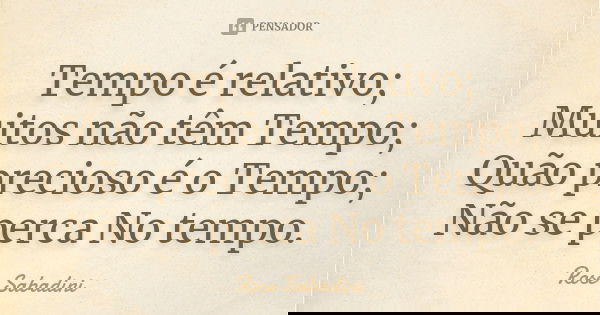 PENSADOR
Tempo é relativo;
Muitos não têm Tempo;
Quão precioso é o Tempo;
Não se perca No tempo.
Rose Sabadini